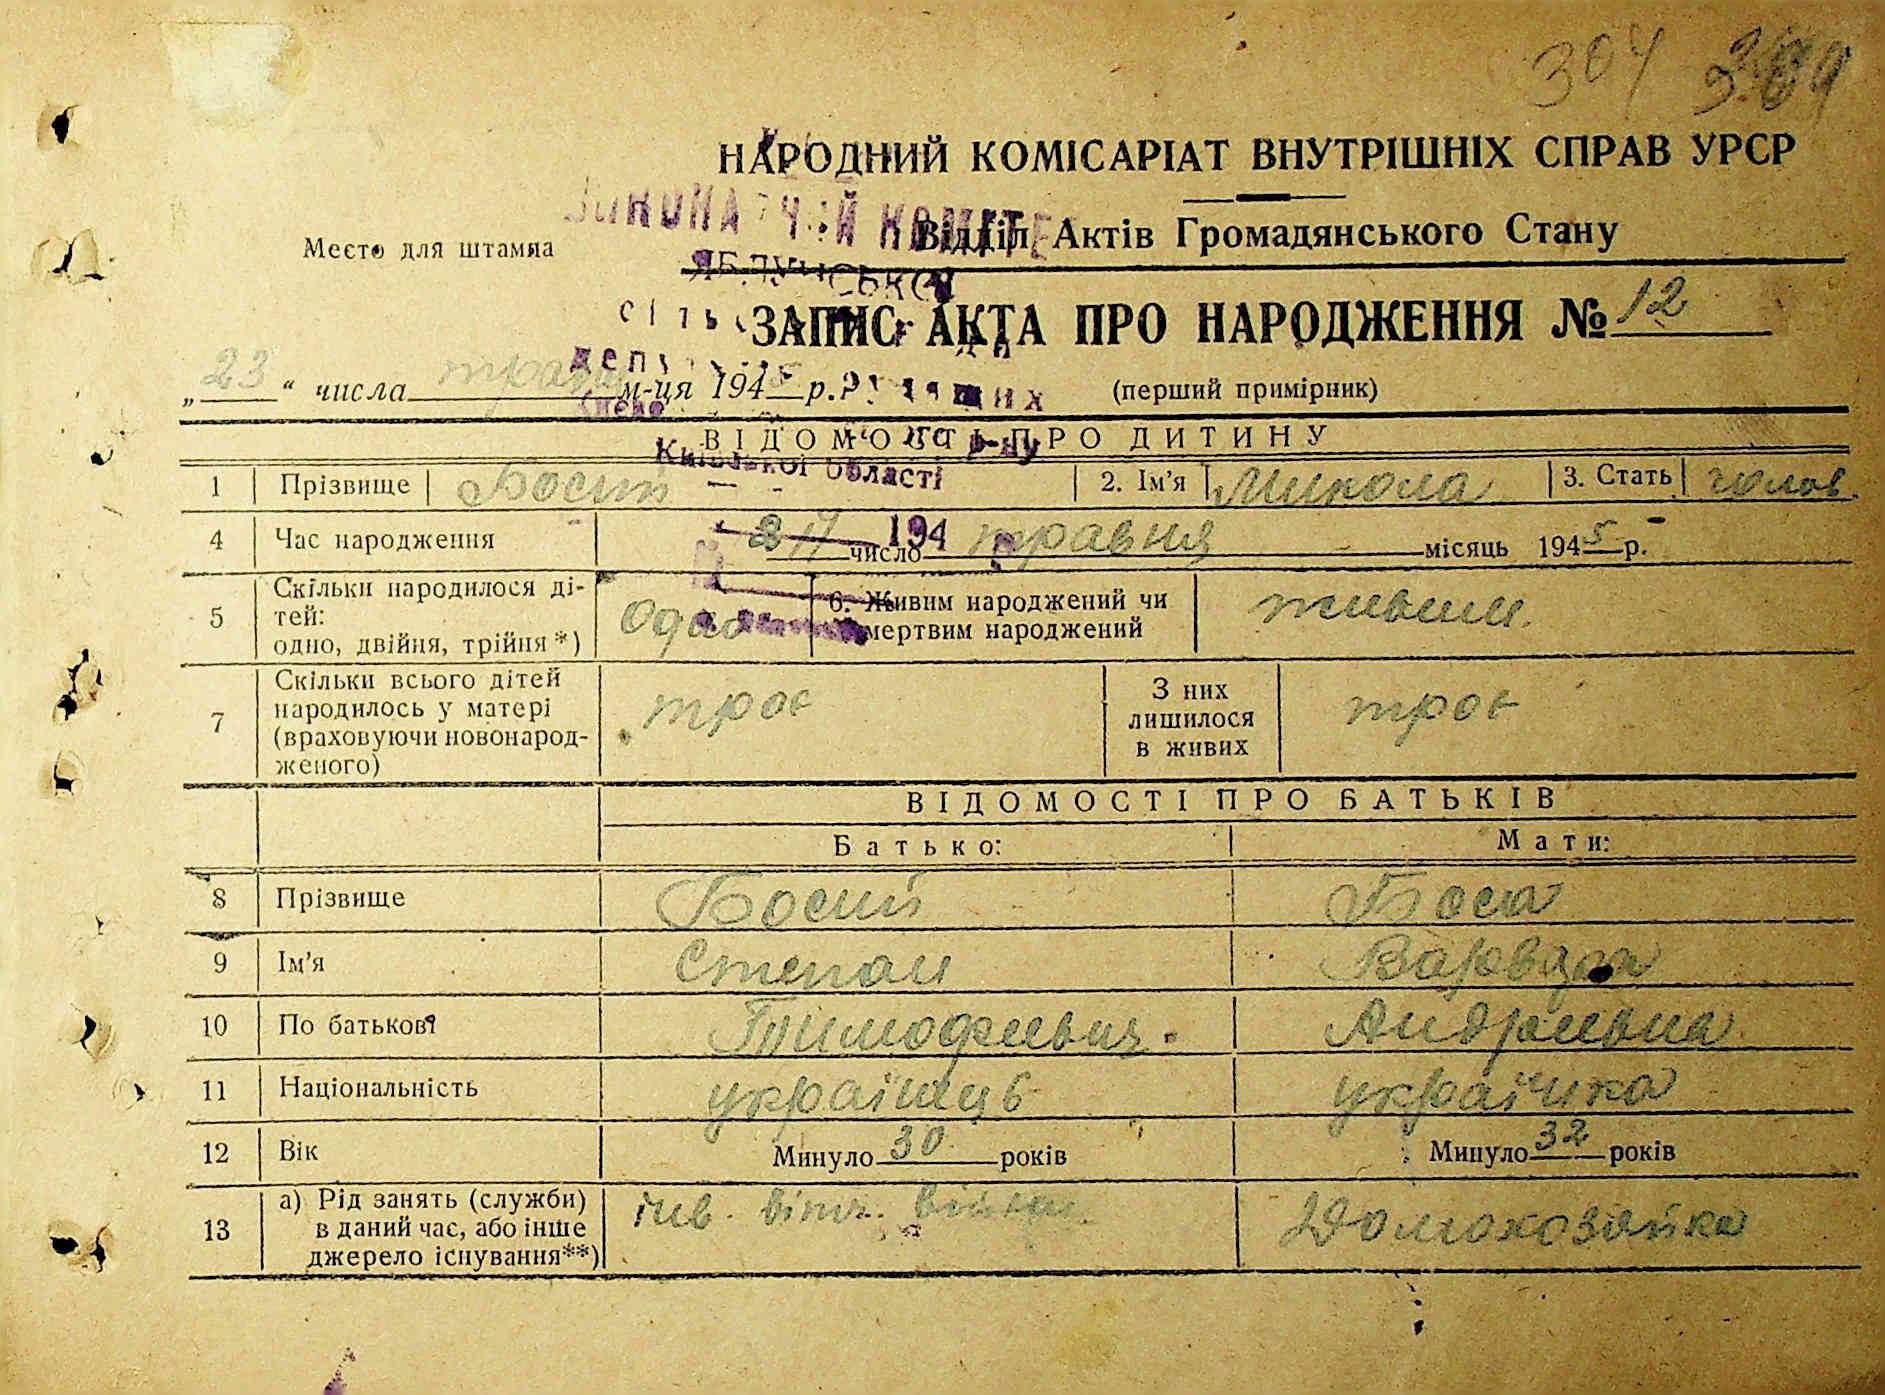 304
НАРОДНИЙ КОМІСАРІАТ ВНУТРІШНІХ СПРАВ УРСР
Відділ Актів Громадянського Стану
Место для штампа
ЗАПИС АКТА ПРО НАРОДЖЕННЯ № 12
„23“ числа травня м-ця 1945 р. (перший примірник)
Київської області
ВІДОМОСТЬ ПРО ДИТИНУ
1 Прізвище Босий 2. Ім'я Микола 3. Стать чолов.
194
4 Час народження число травня місяць 1945 р.
5 Скільки народилося ді-
тей:
одно, двійня, трійня *) Одно 6. Живим народжений чи
мертвим народжений живим.
7 Скільки всього дітей
народилось у матері
(враховуючи новонарод-
женого) троє З них
лишилося
в живих троє
ВІДОМОСТІ ПРО БАТЬКІВ
Батько: Мати:
8 Прізвище Босий Боса
9 Ім'я Степан
10 По батькові Тимофеевич. Андріевна
11 Національність українець українка
12 Вік Минуло 30 років Минуло 32 років
13 а) Рід занять (служби)
в даний час, або інше
джерело існування**) інв. вітч. війни Домохозяйка